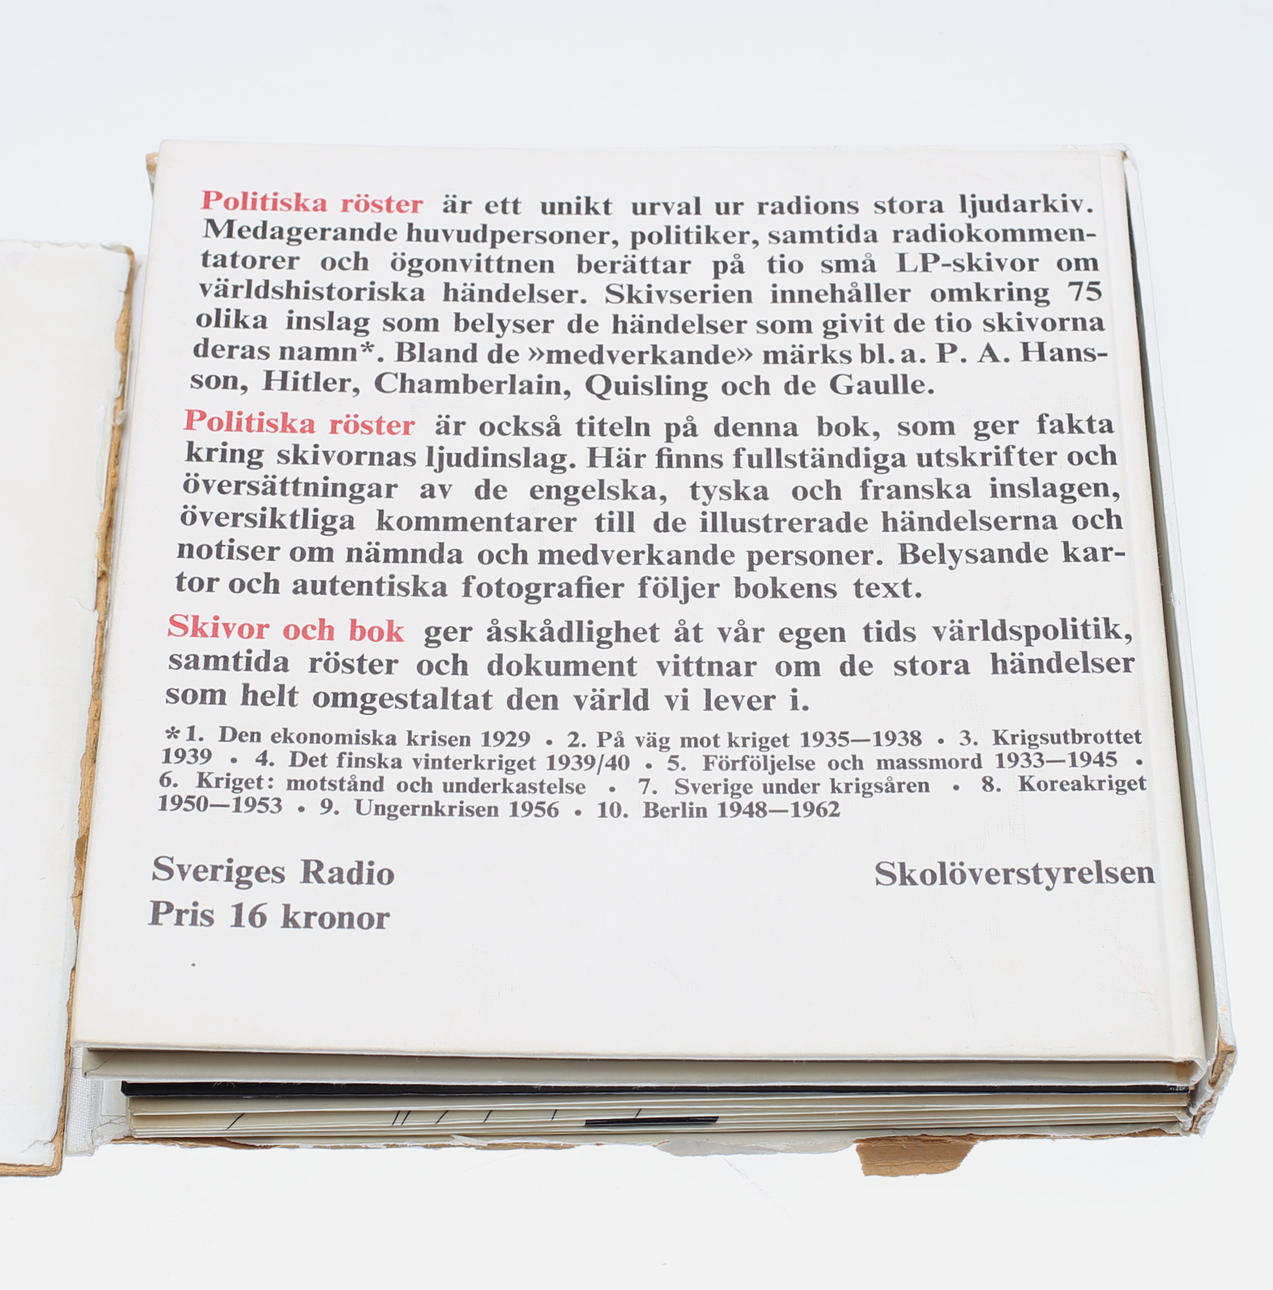 Politiska röster är ett unikt urval ur radions stora ljudarkiv.
Medagerande huvudpersoner, politiker, samtida radiokommen-
tatorer och ögonvittnen berättar på tio små LP-skivor om
världshistoriska händelser. Skivserien innehåller omkring 75
olika inslag som belyser de händelser som givit de tio skivorna
deras namn*. Bland de »medverkande» märks bl. a. P. A. Hans-
son, Hitler, Chamberlain, Quisling och de Gaulle.
Politiska röster är också titeln på denna bok, som ger fakta
kring skivornas ljudinslag. Här finns fullständiga utskrifter och
översättningar av de engelska, tyska och franska inslagen,
översiktliga kommentarer till de illustrerade händelserna och
notiser om nämnda och medverkande personer. Belysande kar-
tor och autentiska fotografier följer bokens text.
Skivor och bok ger åskådlighet åt vår egen tids världspolitik,
samtida röster och dokument vittnar om de stora händelser
som helt omgestaltat den värld vi lever i.
*1. Den ekonomiska krisen 1929 • 2. På väg mot kriget 1935—1938 • 3. Krigsutbrottet
1939 • 4. Det finska vinterkriget 1939/40 • 5. Förföljelse och massmord 1933—1945 •
6. Kriget: motstånd och underkastelse • 7. Sverige under krigsåren • 8. Koreakriget
1950—1953 • 9. Ungernkrisen 1956 • 10. Berlin 1948—1962
Sveriges Radio Skolöverstyrelsen
Pris 16 kronor